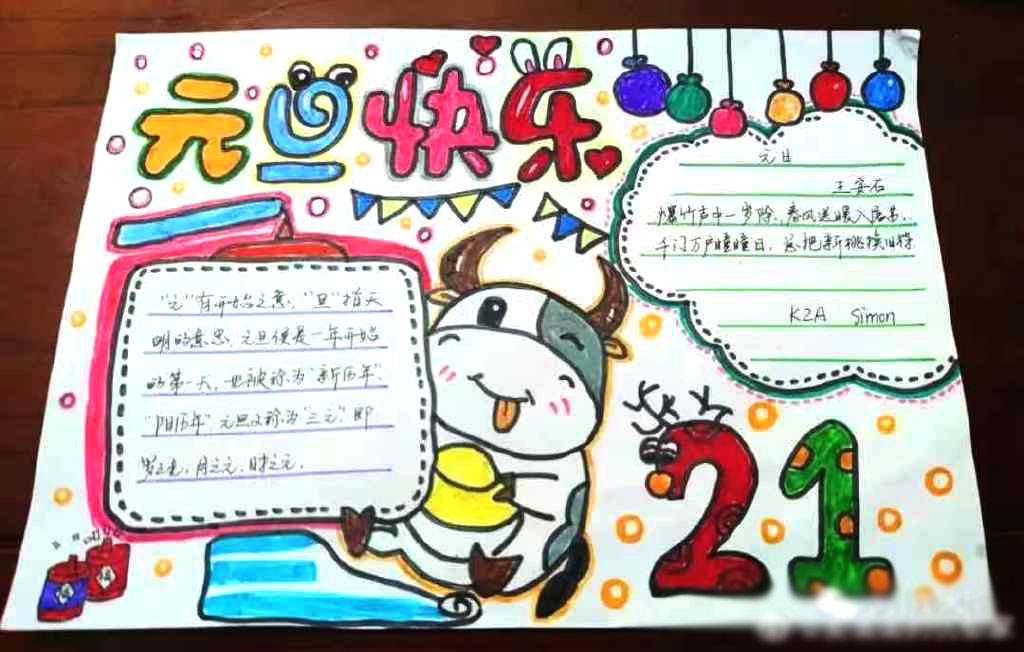 元旦快乐
元日
王安石
爆竹声中一岁除，春风送暖入屠苏。
千门万户曈曈日，总把新桃换旧符
K2A Simon
"元"有开始之意，"旦"指天
明的意思。元旦便是一年开始
的第一天，也被称为"新历年"、
"阳历年"。元旦又称为"三元"，即
岁之元、月之元、时之元。
21
福
福